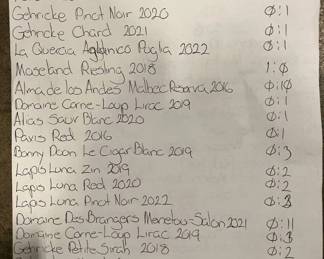 Gehricke Pinot Noir 2020 Ø:1
Gehricke Chard 2021 Ø:1
La Quercia Aglianico Puglia 2022 Ø:1
Moseland Riesling 2018 1:Ø
Alma de los Andes Malbec Reserva 2016 Ø:1Ø
Domaine Corne-Loup Lirac 2019 Ø:1
Alias Sauv Blanc 2020 Ø:1
Pavis Red 2016 Ø:1
Bonny Doon Le Cigar Blanc 2019 Ø:3
Lapis Luna Zin 2019 Ø:2
Lapis Luna Red 2020 Ø:2
Lapis Luna Pinot Noir 2022 Ø:3
Domaine Des Brangers Menetou-Salon 2021 Ø:11
Domaine Corne-Loup Lirac 2019 Ø:3
Gehricke Petite Sirah 2018 Ø:2